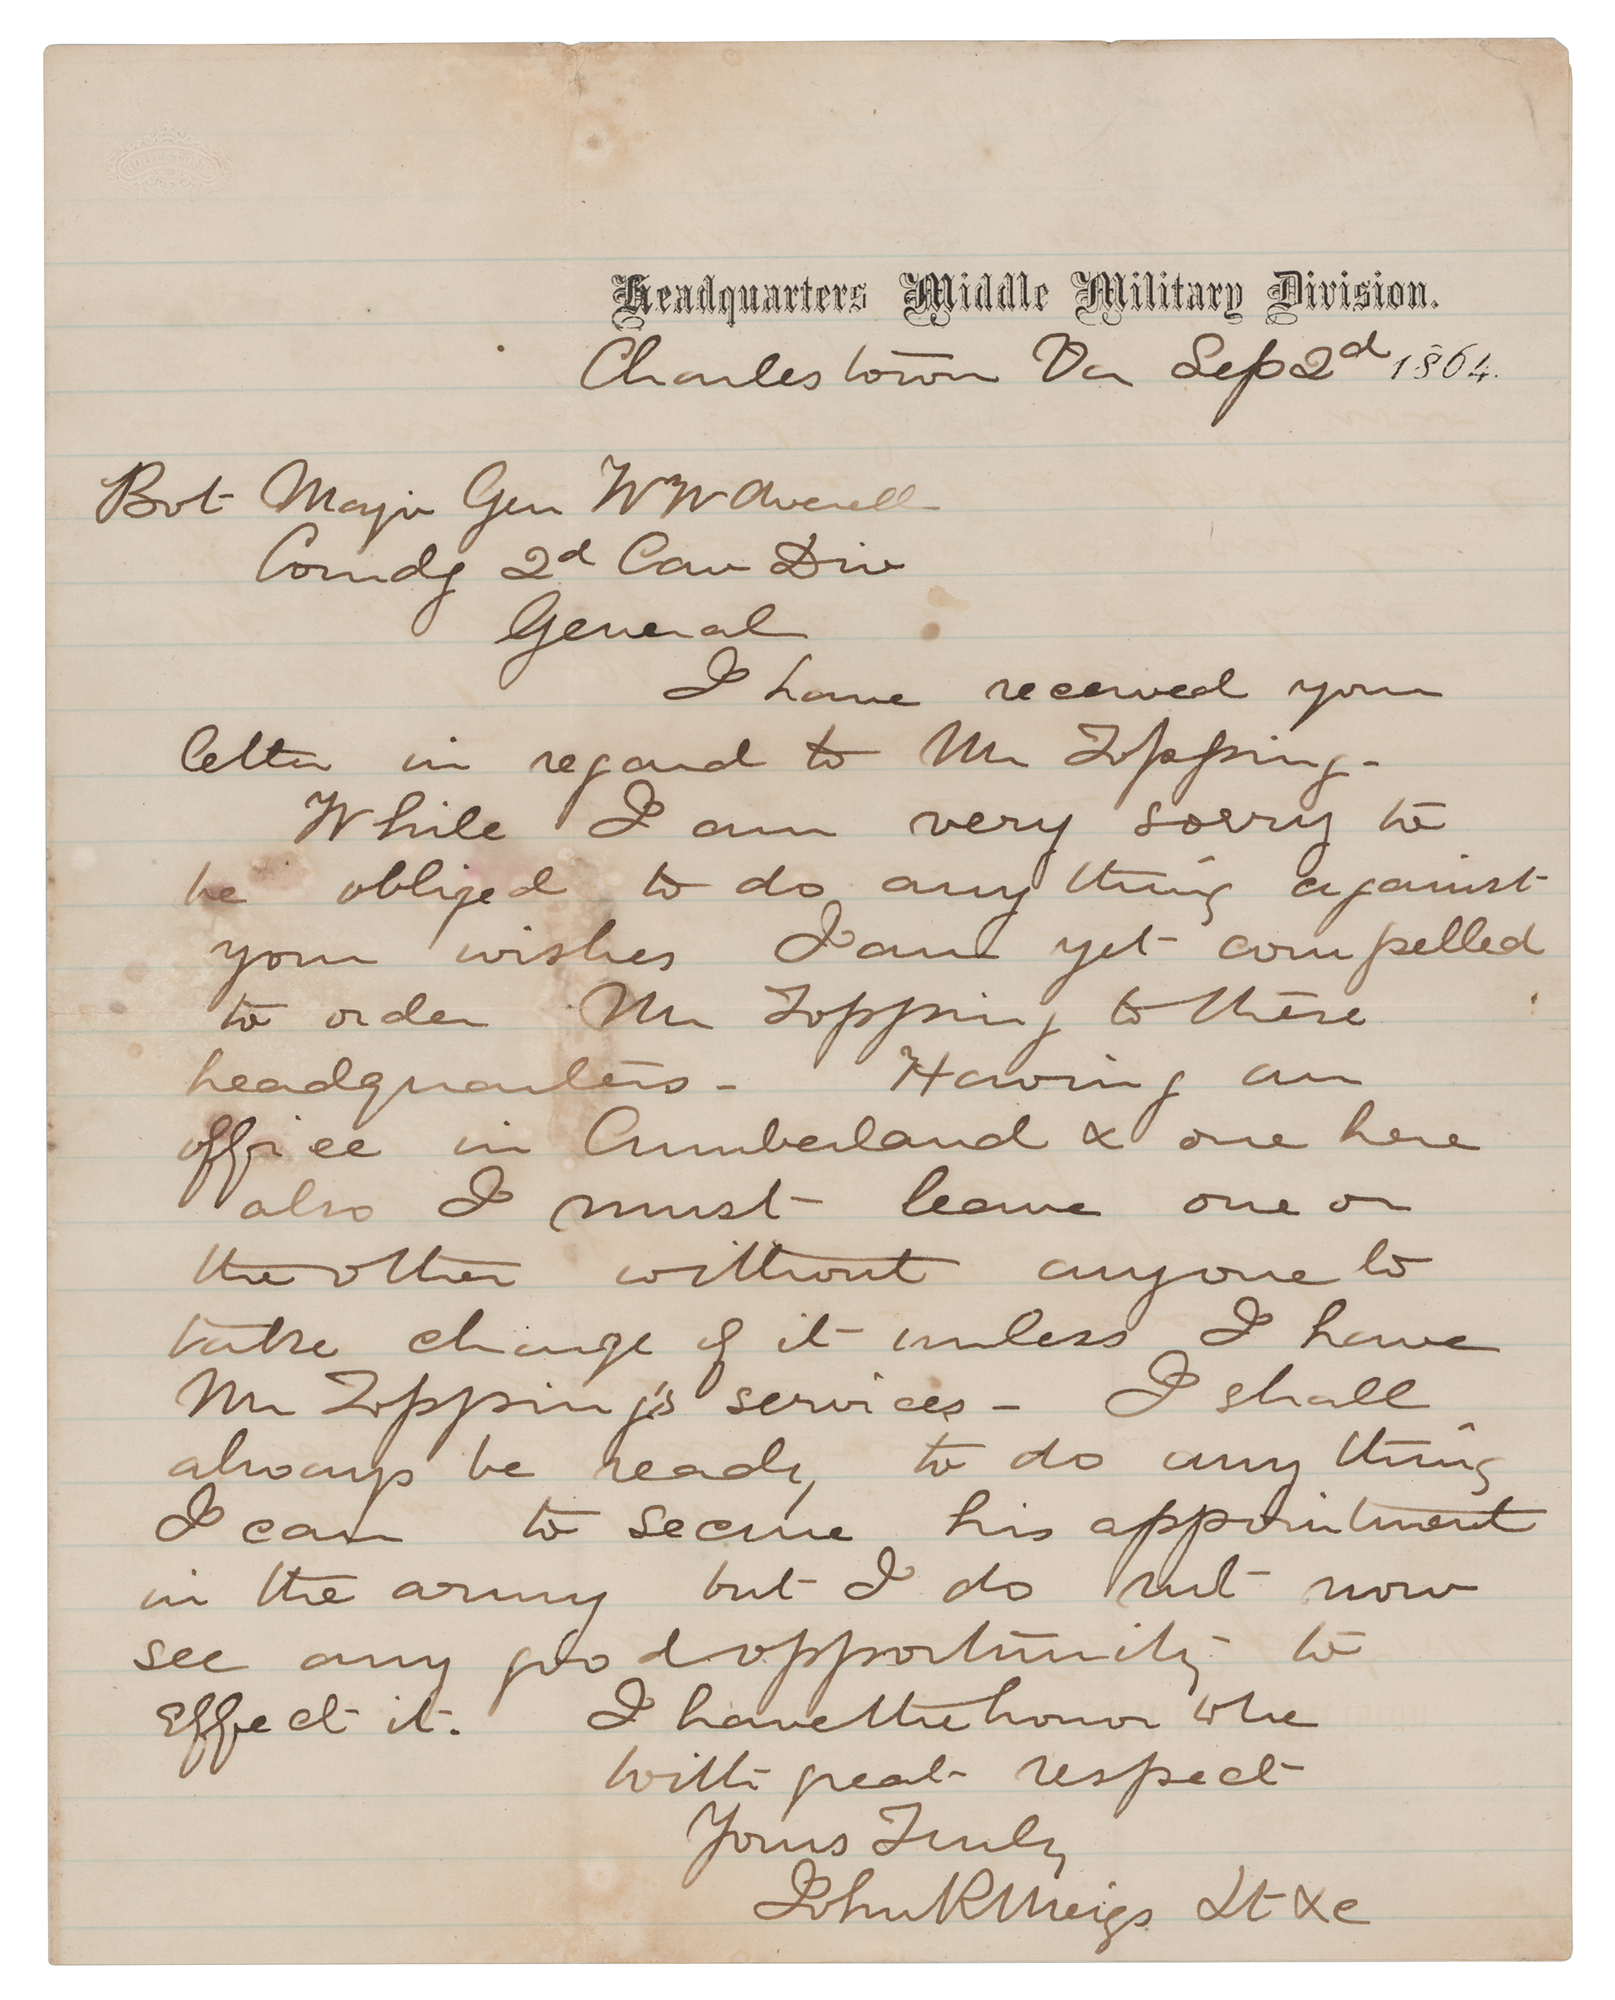 Headquarters Middle Military Division.
Charlestown Va Sep 2d 1864.
Bvt Major Gen W W Averell
Comdg 2d Cav Div
General
I have received your
letter in regard to Mr Topping-
While I am very sorry to
be obliged to do any thing against
your wishes I am yet compelled
to order Mr Topping to these
headquarters- Having an
office in Cumberland & one here
also I must leave one or
the other without anyone to
take charge of it unless I have
Mr Topping's services- I shall
always be ready to do any thing
I can to secure his appointment
in the army but I do not now
see any good opportunity to
effect it. I have the honor to be
with great respect
Yours Truly
John R Meigs Lt &c